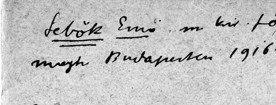 Sebők Ernő m. kir. fő
megh Budapesten 1916.